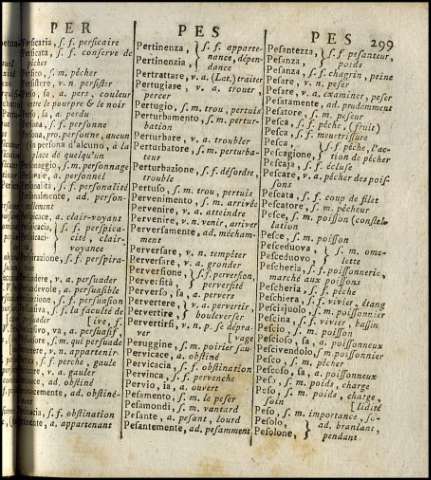 PER
PES
PES 299
Persicaria, s. f. persicaire
s. f. conserve de
pêcher
Persico, s. m. pêcher
v. n. persister
a. pers, couleur
entre le pourpre & le noir
a. perdu
s. f. personne
pro. personne, aucun
persona d'alcuno, à la
place de quelqu'un
s. m. personnage
a. personnel
s. f. personalité
ad. person-
nellement
a. clair-voyant
s. f. perspica-
cité, clair-
voyance
s. f. perspira-
v. a. persuader
a. persuasible
s. f. persuasion
s. f. la faculté de
persuader
[ive, f.
a. persuasif
s. m. qui persuade
v. n. appartenir
s. f. perche, gaule
v. a. gauler
ad. obstiné
ad. obstiné-
ment
s. f. obstination
a. obstinant
Pertinenza, } s. f. apparte-
Pertinenzia, } nance, dépen-
dance
Pertrattare, v. a. (Lat.) traiter
Pertugiare, v. a. trouer,
percer
Pertugio, s. m. trou, pertuis
Perturbamento, s. m. pertur-
bation
Perturbare, v. a. troubler
Perturbatore, s. m. perturba-
teur
Perturbazione, s. f. désordre,
trouble
Pertuso, s. m. trou, pertuis
Pervenimento, s. m. arrivée
Pervenire, v. a. atteindre
Pervenir, v. n. venir, arriver
Perversamente, ad. mécham-
ment
Perversare, v. n. tempêter
Perversare, v. a. gronder
Perversione, } s. f. perversion,
Perversità, } perversité
Perverso, sa, a. pervers
Pervertere, } v. a. pervertir,
Pervertire, } bouleverser
Pervertirsi, v. n. p. se déprá-
ver [vage
Peruggine, s. m. poirier sau-
Pervicace, a. obstiné
Pervicacia, s. f. obstination
Pervinca, s. f. pervenche
Pervio, ia, a. ouvert
Pesamento, s. m. le peser
Pesamondi, s. m. vantard
Pesante, a. pesant, lourd
Pesantemente, ad. pesamment
Pesantezza, } s. f. pesanteur,
Pesanza, } poids
Pesanza, s. f. chagrin, peine
Pesare, v. n. peser
Pesare, v. a. examiner, peser
Pesatamente, ad. prudemment
Pesatore, s. m. peseur
Pesca, s. f. pêche, (fruit)
Pesca, s. f. meurtrissure
Pesca, } s. f. pêche, l'ac-
Pescagione, } tion de pêcher
Pescaja, s. f. écluse
Pescare, v. a. pêcher des pois-
sons
Pescata, s. f. coup de filet
Pescatore, s. m. pêcheur
Pesce, s. m. poisson (constel-
lation
Pesce, s. m. poisson
Pesceduova, } s. m. ome-
Pesceduovo, } lette
Pescheria, s. f. poissonnerie,
marché aux poissons
Pescheria, s. f. pêche
Peschiera, s. f. vivier, étang
s. m. poisson
Pescina, s. f. vivier, bassin
Pescio, s. m. poisson
Pescioso, sa, a. poissonneux
Pescivendolo, s. m. poissonnier
Pesco, s. m. pêcher
Pescoso, sa, a. poissonneux
s. m. poids, charge
Peso, s. m. poids, charge,
soin [lidité
Peso, s. m. importance, so-
Pesolo, } ad. branlant,
Pesolone, } pendant